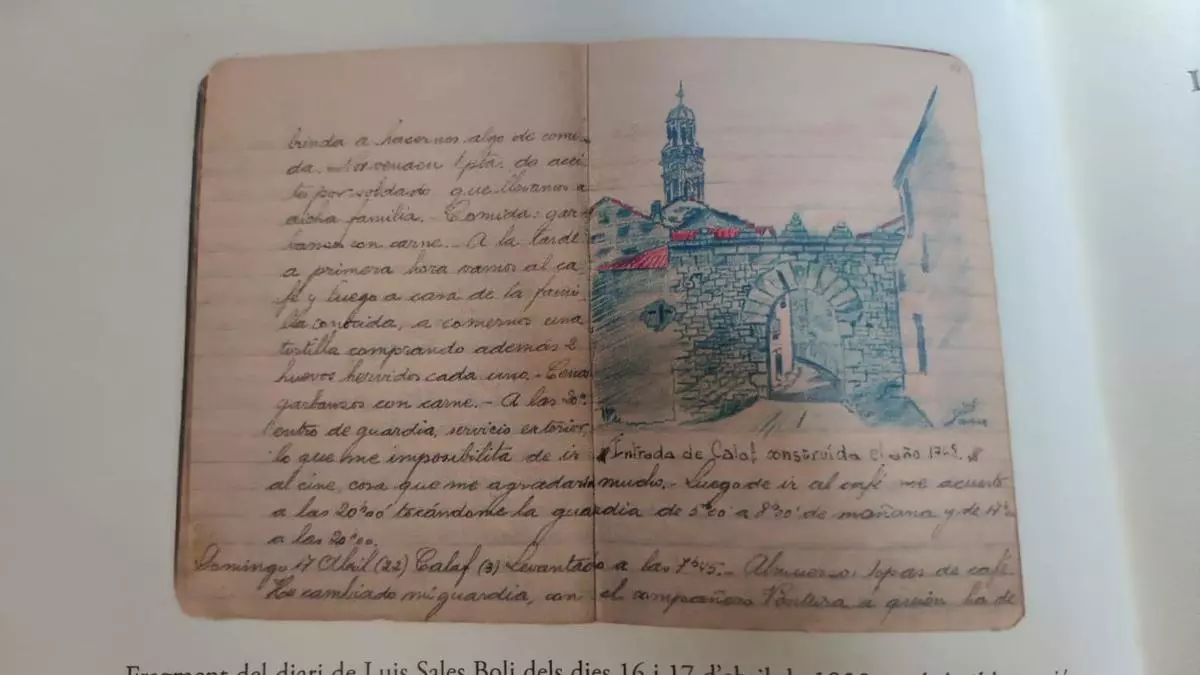 brinda a hacernos algo de comi-
da. 1 pta. de acei
te por soldado que llevamos a
dicha familia. - Comida: gar
banzos con carne. - A la tarde
a primera hora vamos al ca
fé y luego a casa de la fami
lia conocida, a comernos una
tortilla comprando además 2
huevos hervidos cada uno. - Cena
garbanzos con carne. - A las 20h
entro de guardia, servicio exterior,
lo que me imposibilita de ir
Entrada de Calaf construida el año
al cine, cosa que me agradaria mucho. - Luego de ir al café me acuesto
a las 20h00' tocándome la guardia de a de mañana y de
a las 20h00.
Domingo 17 Abril (22) Calaf (3) Levantado a las 7h45. - Almuerzo: sopas de café.
He cambiado mi guardia, con el compañero a quién ha de
Fragment del diari de Luis Sales Boli dels dies 16 i 17 d'abril de